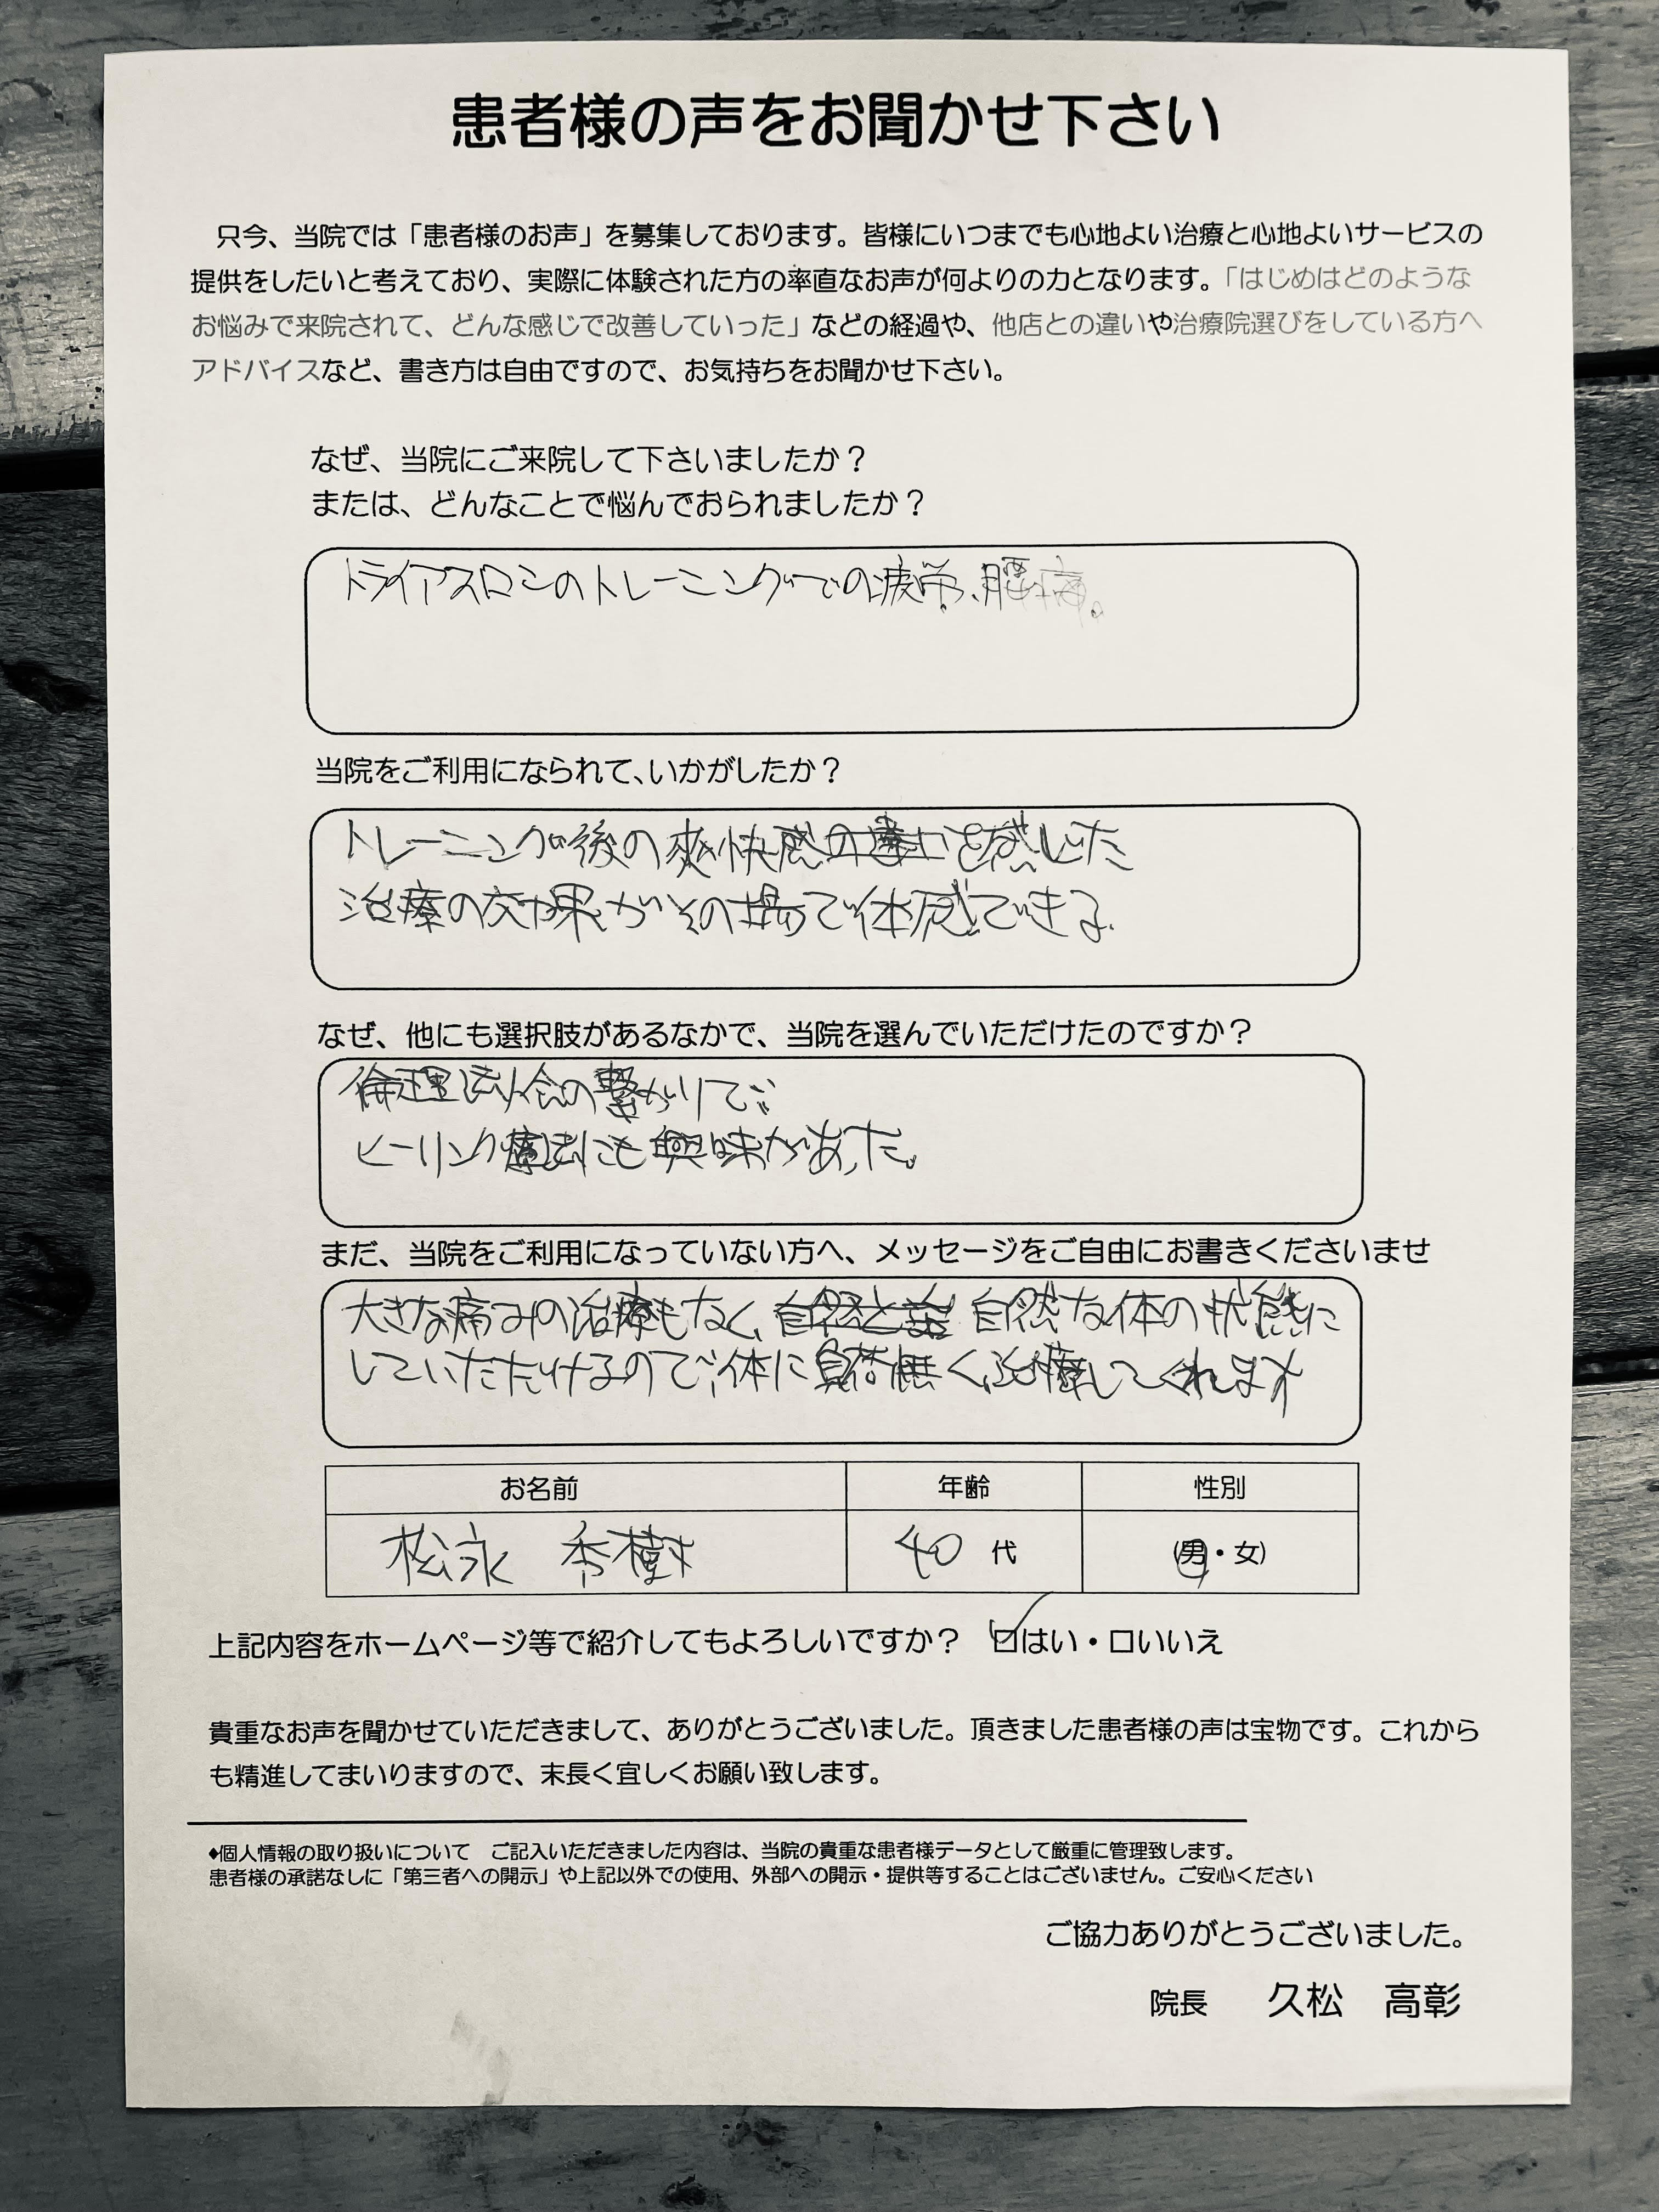 患者様の声をお聞かせ下さい
只今、当院では「患者様のお声」を募集しております。皆様にいつまでも心地よい治療と心地よいサービスの
提供をしたいと考えており、実際に体験された方の率直なお声が何よりの力となります。「はじめはどのような
お悩みで来院されて、どんな感じで改善していった」などの経過や、他店との違いや治療院選びをしている方へ
アドバイスなど、書き方は自由ですので、お気持ちをお聞かせ下さい。
なぜ、当院にご来院して下さいましたか？
または、どんなことで悩んでおられましたか？
トライアスロンのトレーニングでの疲労、腰痛。
当院をご利用になられて、いかがしたか？
トレーニング後の爽快感を感じた
治療の効果がその場で体感できる.
なぜ、他にも選択肢があるなかで、当院を選んでいただけたのですか？
倫理法人会の繋がりで
ヒーリング療法にも興味があった。
まだ、当院をご利用になっていない方へ、メッセージをご自由にお書きくださいませ
大きな痛みの治療もなく、自然な体の状態に
していただけるので、体に負荷無く、治療してくれます
お名前 年齢 性別
松永 秀樹 40 代 (男・女)
上記内容をホームページ等で紹介してもよろしいですか？ ☑はい・□いいえ
貴重なお声を聞かせていただきまして、ありがとうございました。頂きました患者様の声は宝物です。これから
も精進してまいりますので、末長く宜しくお願い致します。
♦個人情報の取り扱いについて ご記入いただきました内容は、当院の貴重な患者様データとして厳重に管理致します。
患者様の承諾なしに「第三者への開示」や上記以外での使用、外部への開示・提供等することはございません。ご安心ください
ご協力ありがとうございました。
院長 久松 高彰